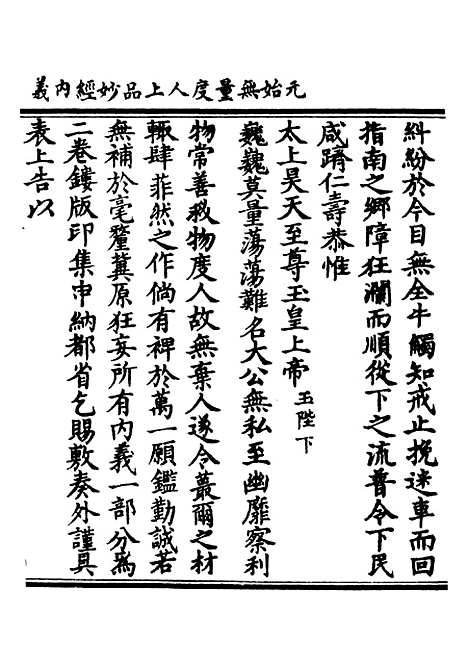 元始無量度人上品妙經內義
糾紛於今目無全牛觸知戒止挽迷車而回
指南之鄉障狂瀾而順從下之流普令下民
咸躋仁壽恭惟
太上昊天至尊玉皇上帝玉陛下
巍巍莫量蕩蕩難名大公無私至幽靡察利
物常善救物度人故無棄人遂令蕞爾之材
輒肆菲然之作倘有裨於萬一願鑑勤誠若
無補於毫釐冀原狂妄所有內義一部分為
二卷鏤版印集申納都省乞賜敷奏外謹具
表上告以